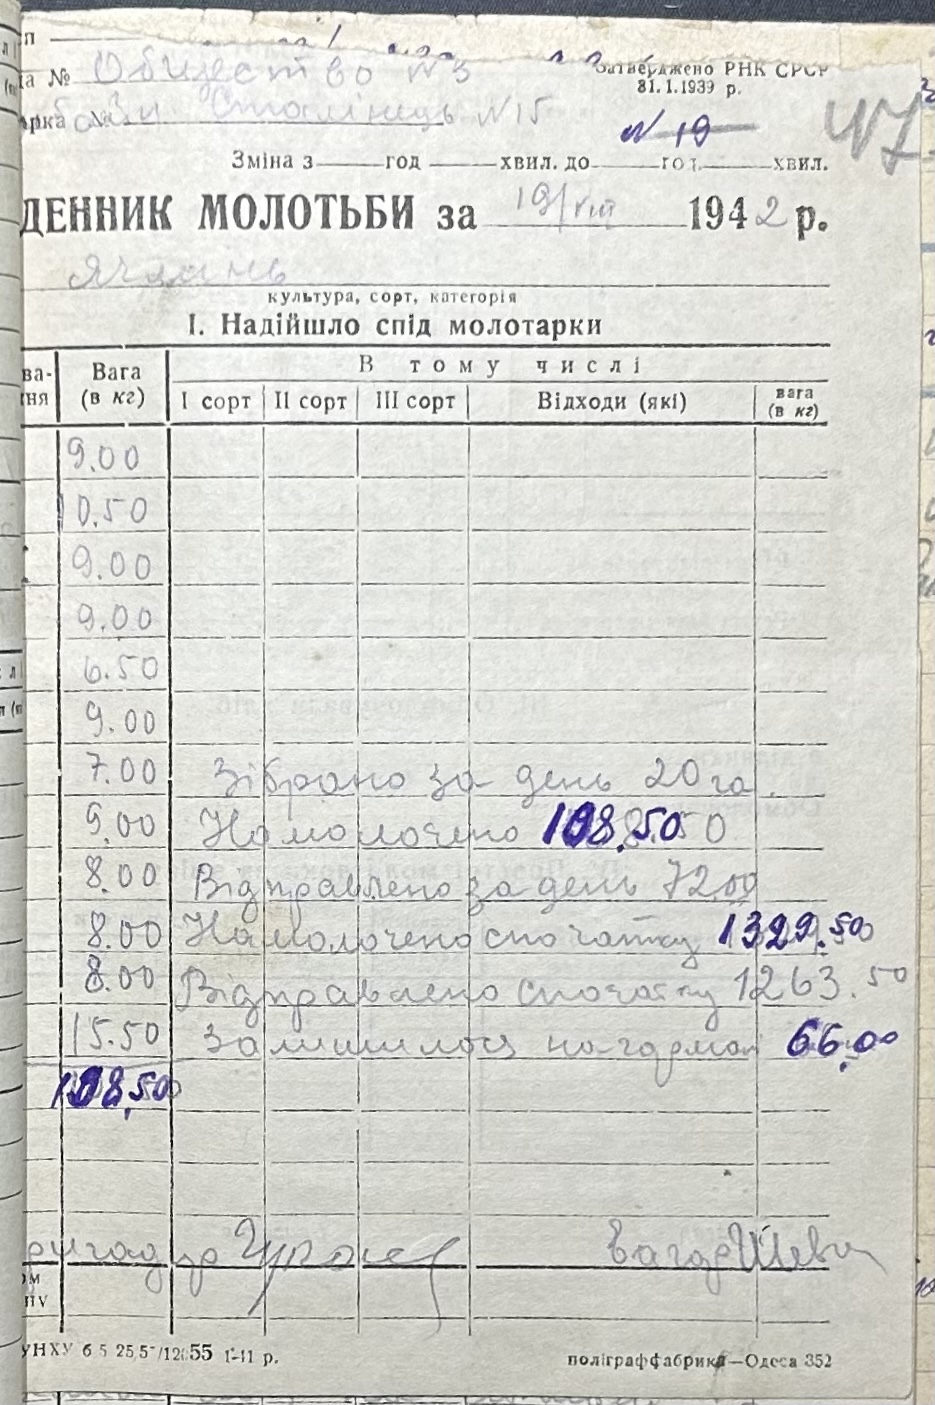 п
ка № Общество №3
Затверджено РНК СРСР
81.1.1939 р.
арка № Сталінець №15
№ 19
47
Зміна з год хвил. до год. хвил.
ДЕННИК МОЛОТЬБИ за 19/VIII 1942 р.
Ячмінь
культура, сорт, категорія
І. Надійшло спід молотарки
ва-ння Вага (в кг) В тому числі
І сорт ІІ сорт ІІІ сорт Відходи (які) вага (в кг)
9.00
10.50
9.00
9.00
6.50
9.00
7.00 Зібрано за день 20 га.
9.00 Намолочено 108.50
8.00 Відправлено за день 72.00
8.00 Намолочено спочатку 1329.50
8.00 Відправлено спочатку 1263.50
15.50 Залишилось на гарман 66.00
108,50
бригадир Вагар Шевч
ом
ПV
УНХУ 6 5 255 1-11 р. поліграффабрика—Одеса 352